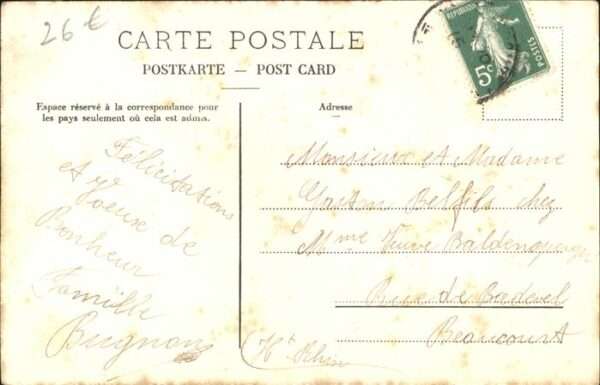 26 €
CARTE POSTALE
POSTKARTE — POST CARD
Espace réservé à la correspondance pour
les pays seulement où cela est admis.
Adresse
REPUBLIQUE
POSTES
5c
Félicitations
et
voeux de
Bonheur
Famille
Bugnon
Monsieur et Madame
Gaston Belfils chez
Mme Veuve
Rue de Badevel
Beaucourt
Ht Rhin